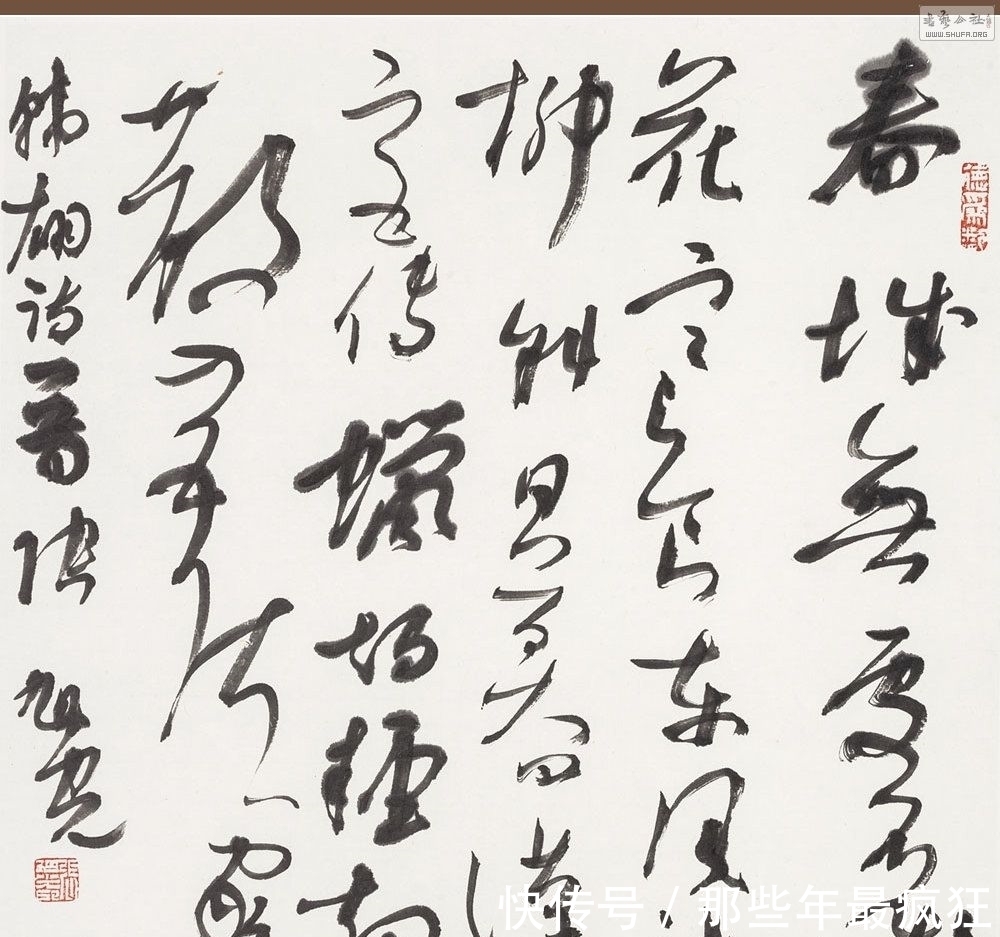 書藝公社
WWW.SHUFA.ORG
春城無處不
花寒食東風
柳斜日暮漢
宮傳蠟燭輕
散入五侯家
韓翃詩一首 張旭光
快传号 / 那些年最疯狂